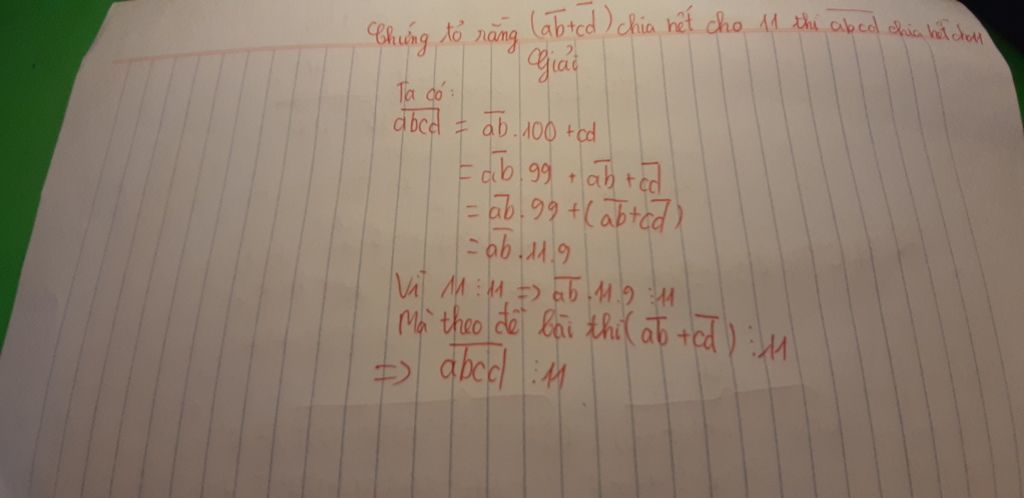 Chứng tỏ rằng (a̅b̅+c̅d̅) chia hết cho 11 thì a̅b̅c̅d̅ chia hết cho 11
Giải
Ta có:
a̅b̅c̅d̅ = a̅b̅.100 + cd
= a̅b̅.99 + a̅b̅ + c̅d̅
= a̅b̅.99 + (a̅b̅+c̅d̅)
= a̅b̅.11.9
Vì 11⋮11 => a̅b̅.11.9⋮11
Mà theo đề bài thì (a̅b̅ + c̅d̅)⋮11
=> a̅b̅c̅d̅ ⋮11